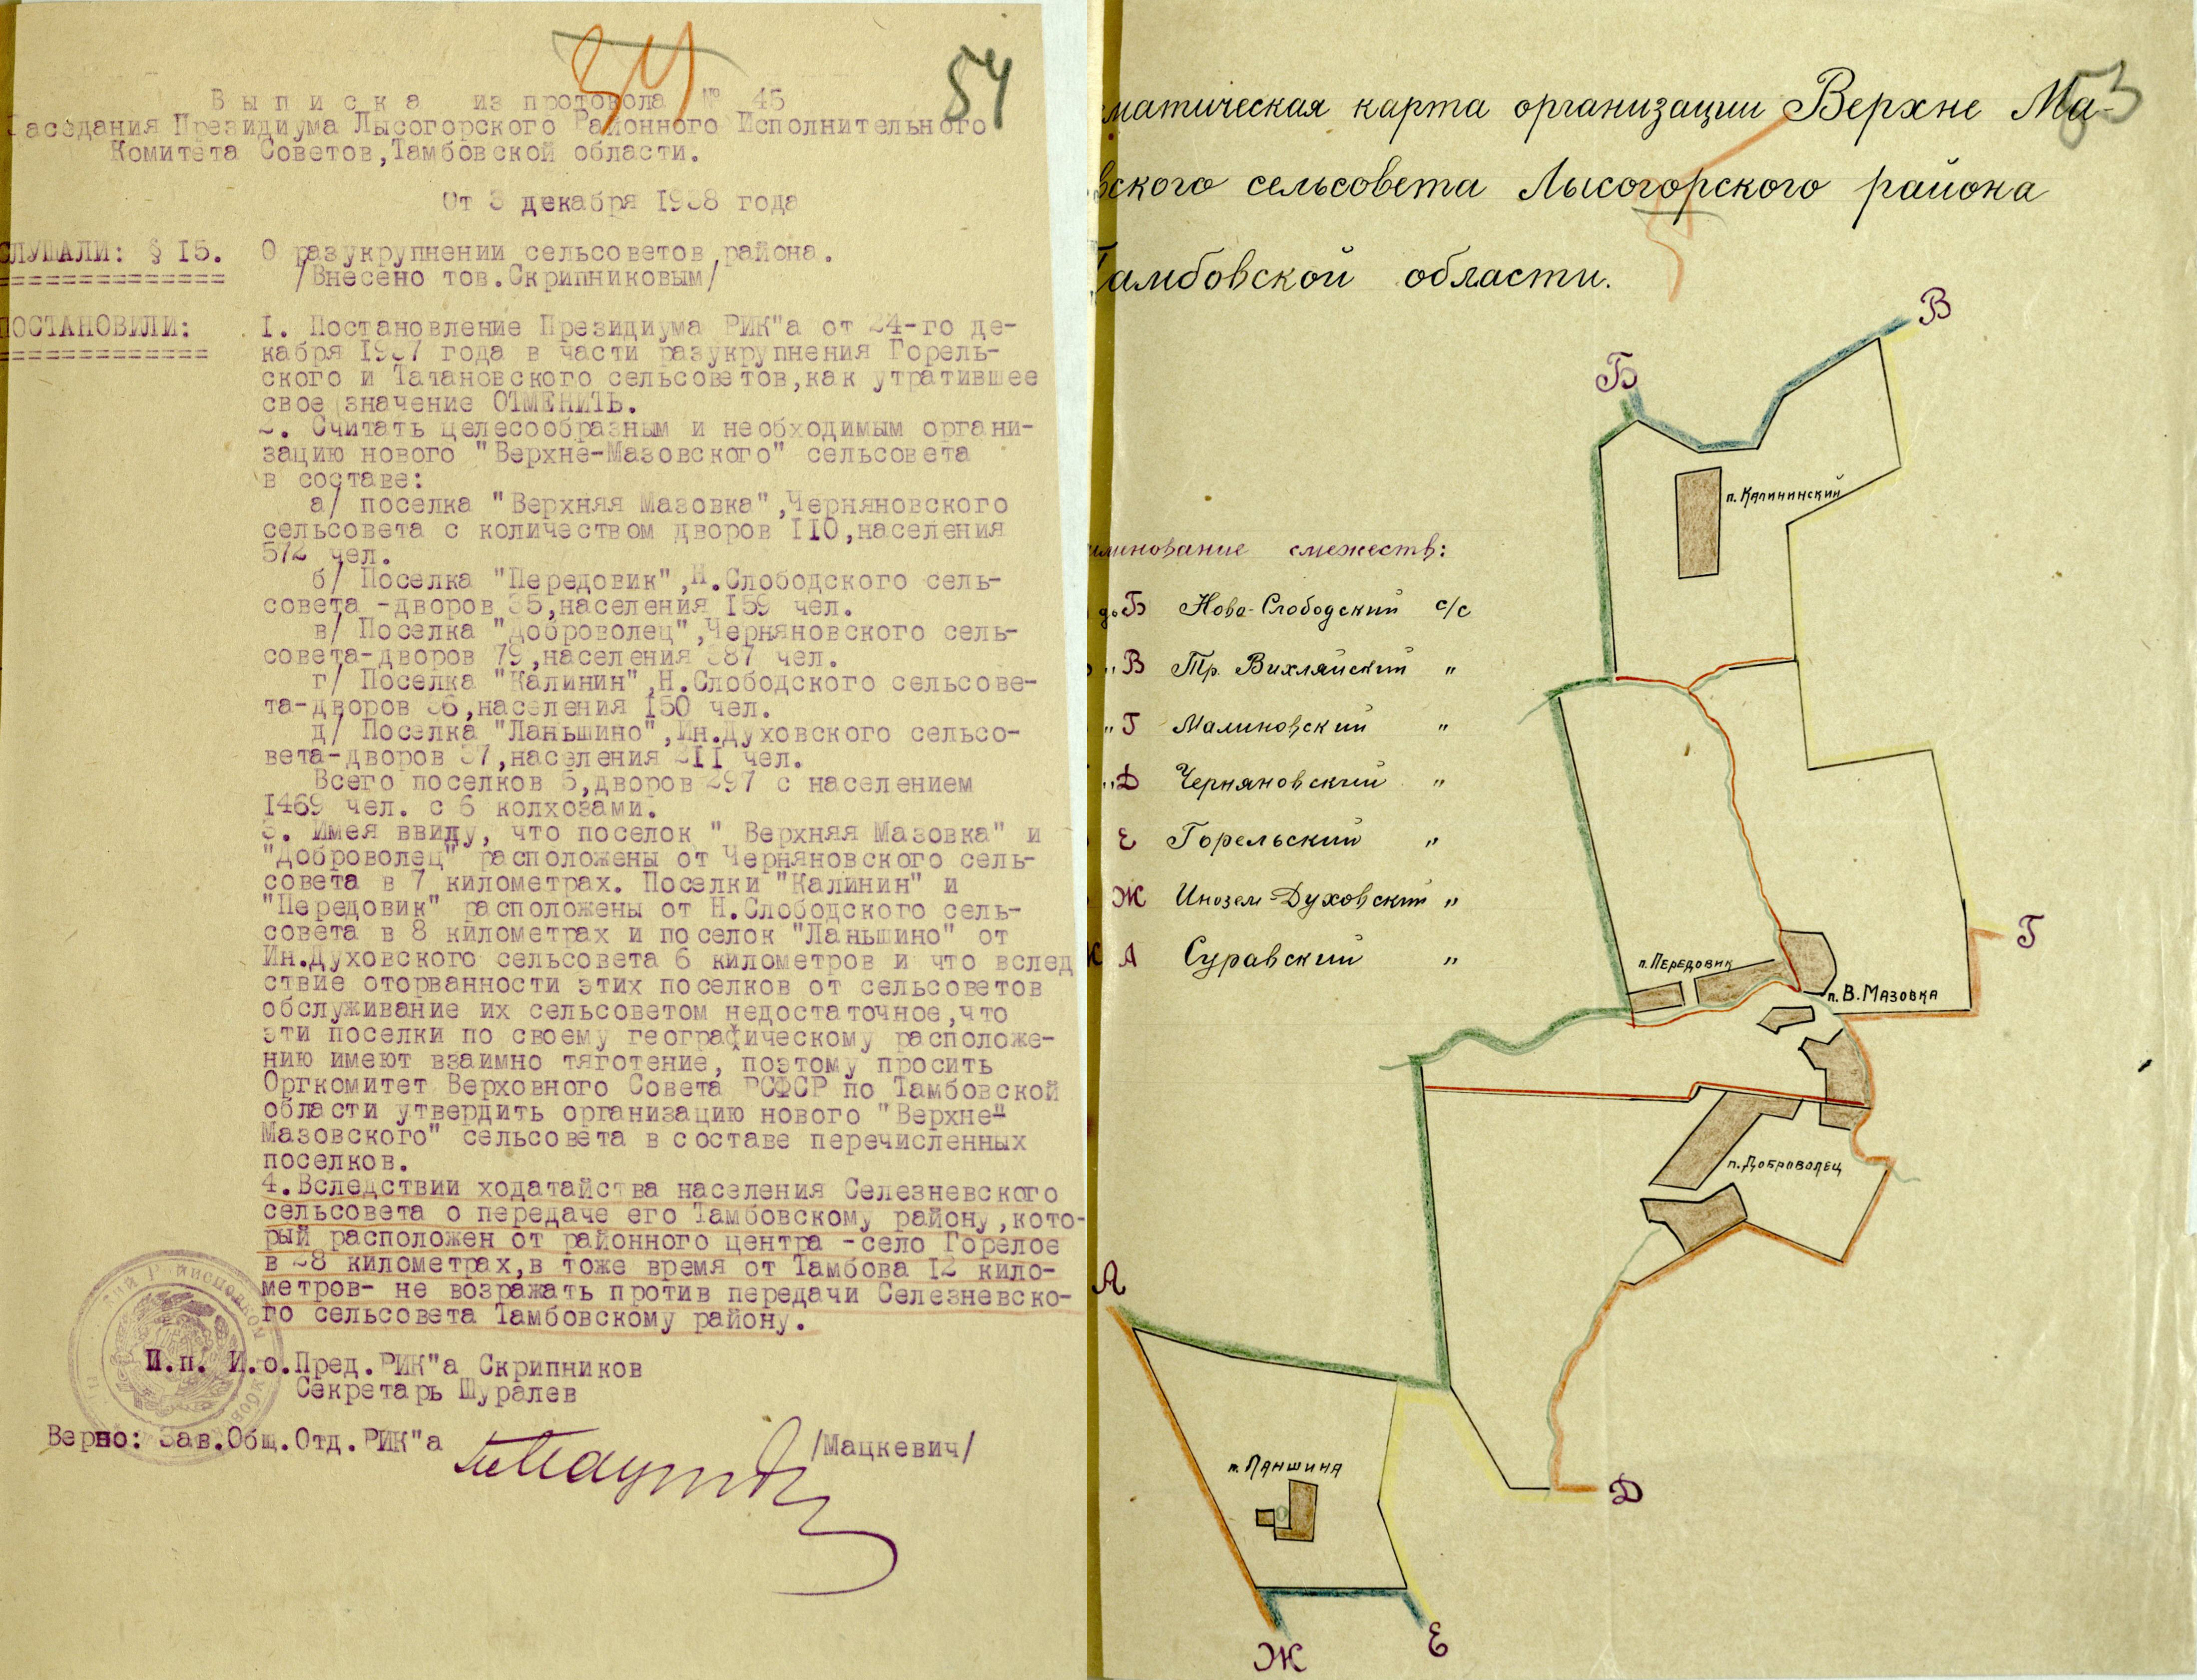 54
54
Выписка из протокола № 45
Заседания Президиума Лысогорского Районного Исполнительного
Комитета Советов, Тамбовской области.
От 3 декабря 1938 года
СЛУШАЛИ: § 15. О разукрупнении сельсоветов района.
/Внесено тов.Скрипниковым/
ПОСТАНОВИЛИ: 1. Постановление Президиума РИК"а от 24-го де-
кабря 1937 года в части разукрупнения Горель-
ского и Татановского сельсоветов, как утратившее
свое значение ОТМЕНИТЬ.
2. Считать целесообразным и необходимым органи-
зацию нового "Верхне-Мазовского" сельсовета
в составе:
а/ поселка "Верхняя Мазовка", Черняновского
сельсовета с количеством дворов 110, населения
572 чел.
б/ Поселка "Передовик", Н.Слободского сель-
совета -дворов 35, населения 159 чел.
в/ Поселка "Доброволец", Черняновского сель-
совета-дворов 79, населения 387 чел.
г/ Поселка "Калинин", Н.Слободского сельсове-
та-дворов 36, населения 150 чел.
д/ Поселка "Ланьшино", Ин.Духовского сельсо-
вета-дворов 37, населения 211 чел.
Всего поселков 5, дворов 297 с населением
1469 чел. с 6 колхозами.
3. Имея ввиду, что поселок " Верхняя Мазовка" и
"Доброволец" расположены от Черняновского сель-
совета в 7 километрах. Поселки "Калинин" и
"Передовик" расположены от Н.Слободского сель-
совета в 8 километрах и поселок "Ланьшино" от
Ин.Духовского сельсовета 6 километров и что вслед
ствие оторванности этих поселков от сельсоветов
обслуживание их сельсоветом недостаточное, что
эти поселки по своему географическому расположе-
нию имеют взаимно тяготение, поэтому просить
Оргкомитет Верховного Совета РСФСР по Тамбовской
области утвердить организацию нового "Верхне-
Мазовского" сельсовета в составе перечисленных
поселков.
4. Вследствии ходатайства населения Селезневского
сельсовета о передаче его Тамбовскому району, кото-
рый расположен от районного центра -село Горелое
в 28 километрах, в тоже время от Тамбова 12 кило-
метров- не возражать против передачи Селезневско-
го сельсовета Тамбовскому району.
П.п. И.о.Пред.РИК"а Скрипников
Секретарь Шуралев
Верно: Зав.Общ.Отд.РИК"а /Мацкевич/
53
матическая карта организации Верхне Ма-
вского сельсовета Лысогорского района
Тамбовской области.
В
Б
п. Калининский
именование смежеств:
до Б Ново-Слободский с/с
" В Тр. Вихляйский "
" Г Малиновский "
" Д Черняновский "
Е Горельский "
Ж Инозем-Духовский "
А Суравский "
Г
п. Передовик
п. В. Мазовка
п. Доброволец
А
п. Ланшина
Д
Ж
Е